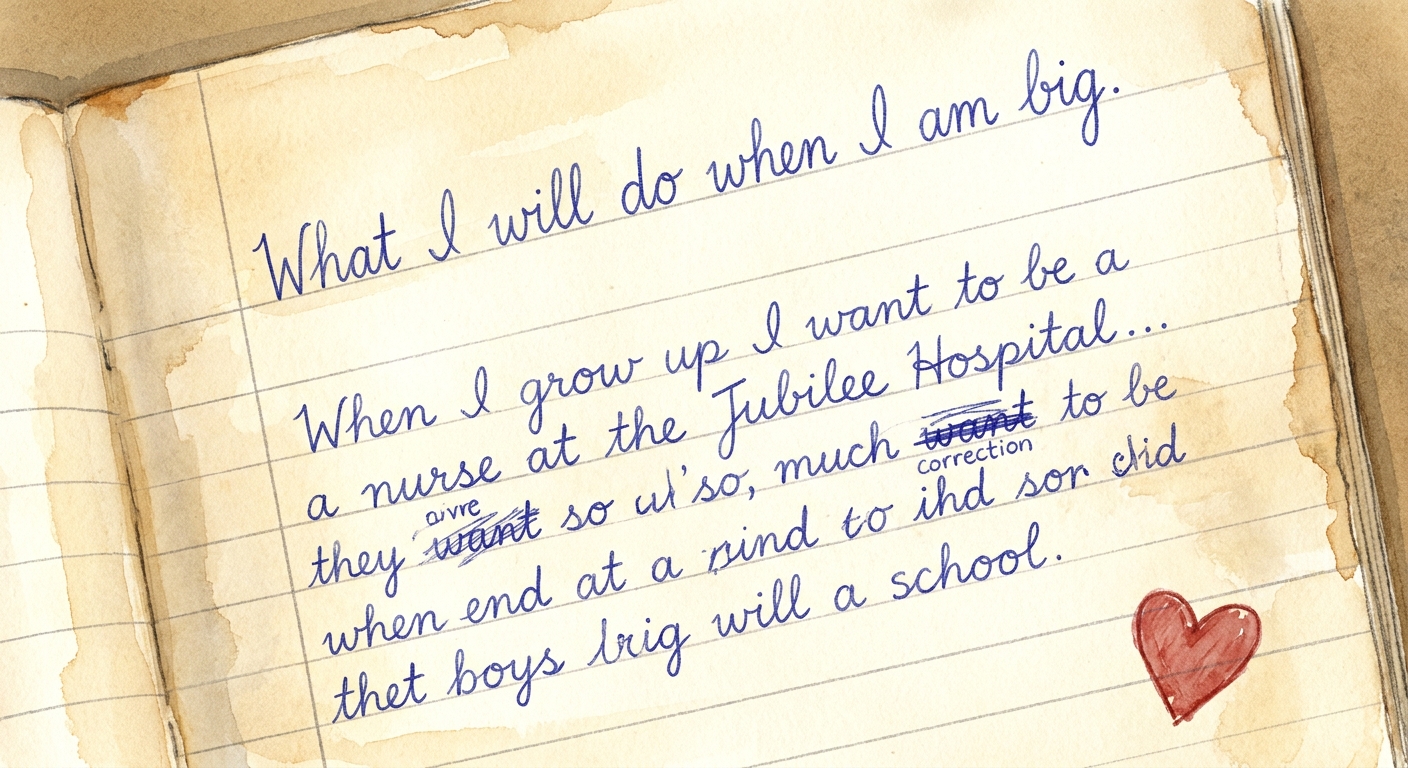 What I will do when I am big.
When I grow up I want to be a
a nurse at the Jubilee Hospital...
they want so so, much want to be
correction
when end at a to ihd sor did
thet boys brig will a school.